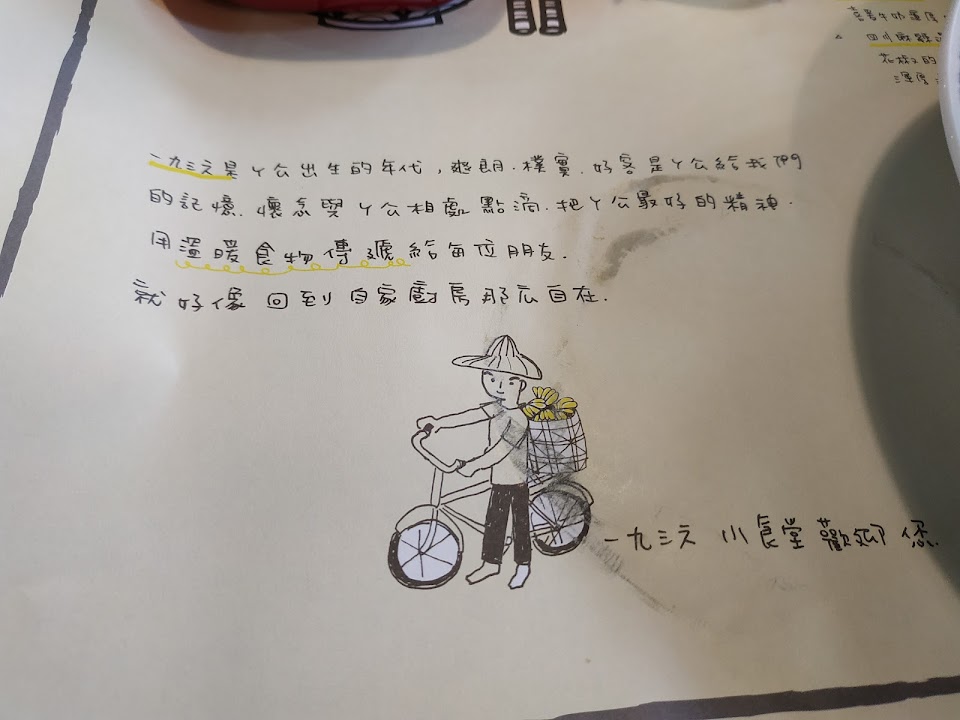 牛奶
四川麻辣
花椒的
一九三六是ㄚ公出生的年代，爽朗．樸實．好客是ㄚ公給我們
的記憶．懷念與ㄚ公相處點滴．把ㄚ公最好的精神．
用溫暖食物傳遞給每位朋友．
就好像回到自家廚房那么自在．
一九三六 小食堂歡迎您.